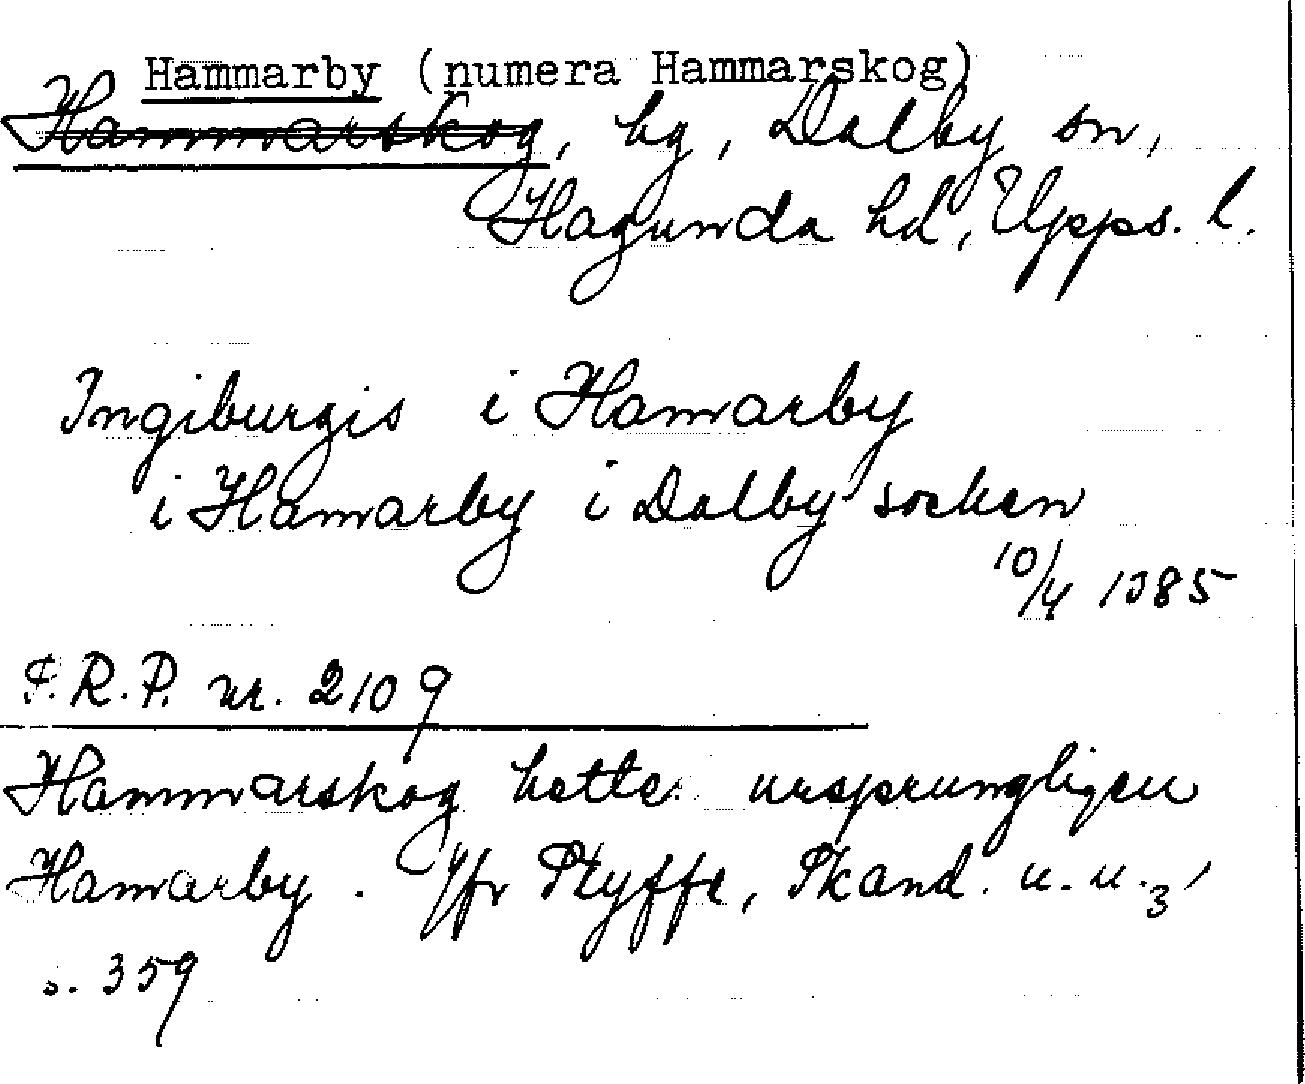 Hammarby (numera Hammarskog)
Hammarskog, bg, Dalby sn,
Hagunda hd, Upps. l.
Ingiburgis i Hamarby
i Hamarby i Dalby socken
10/4 1385
S.R.P. nr. 2109
Hammarskog hette ursprungligen
Hamarby. Jfr Styffe, Skand. u. u.3,
s. 359